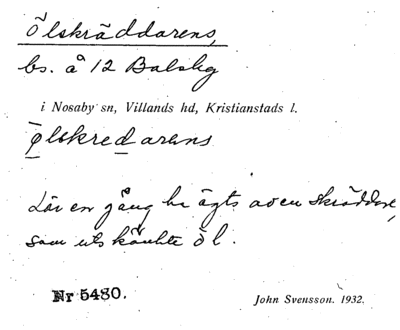 Ölskräddarens,
bs. å 12 Balsby
i Nosaby sn, Villands hd, Kristianstads l.
ølskredarens
Lär en gång ha ägts av en skräddare,
som utskänkte öl.
Nr 5480.
John Svensson. 1932.